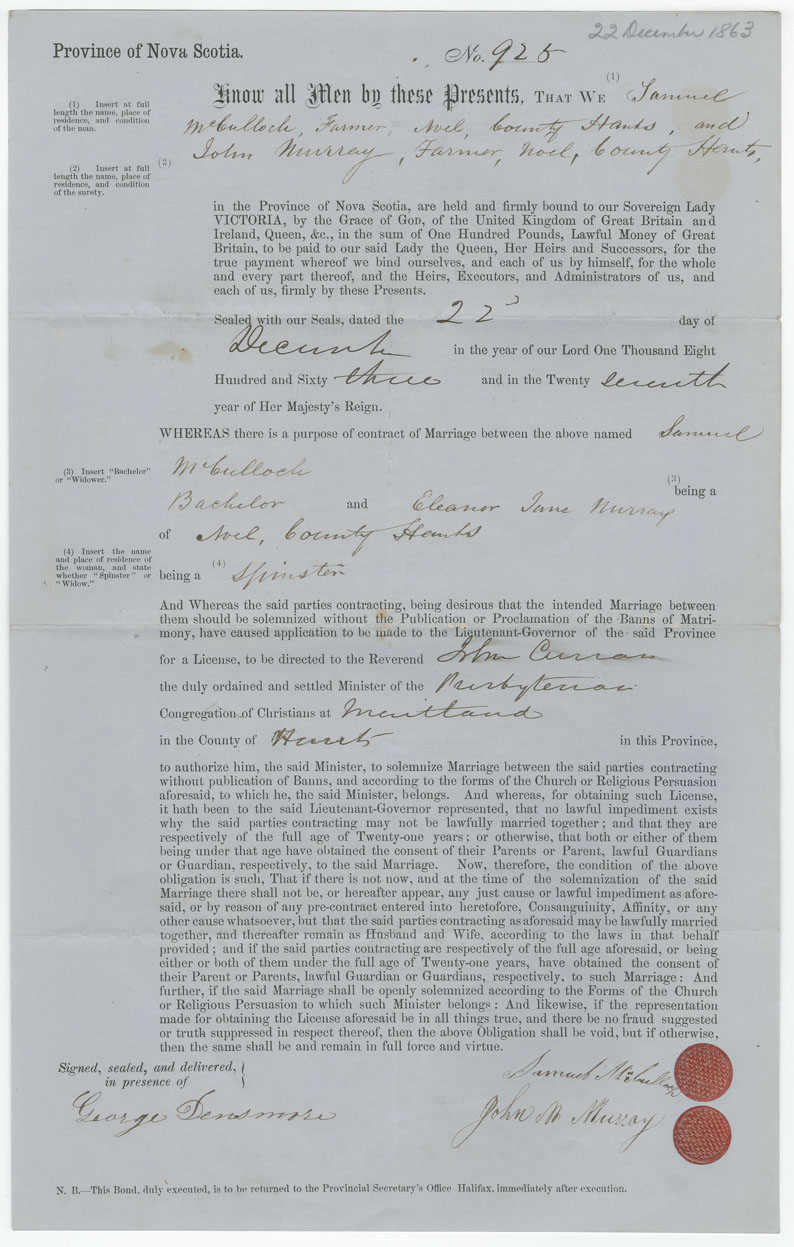 22 December 1863
Province of Nova Scotia.
No. 925
Know all Men by these Presents, THAT WE (1) Samuel
McCulloch, Farmer, Noel, County Hants, and
(2) John Murray, Farmer, Noel, County Hants,
(1) Insert at full
length the name, place of
residence, and condition
of the man.
(2) Insert at full
length the name, place of
residence, and condition
of the surety.
in the Province of Nova Scotia, are held and firmly bound to our Sovereign Lady
VICTORIA, by the Grace of GOD, of the United Kingdom of Great Britain and
Ireland, Queen, &c., in the sum of One Hundred Pounds, Lawful Money of Great
Britain, to be paid to our said Lady the Queen, Her Heirs and Successors, for the
true payment whereof we bind ourselves, and each of us by himself, for the whole
and every part thereof, and the Heirs, Executors, and Administrators of us, and
each of us, firmly by these Presents.
Sealed with our Seals, dated the 22 day of
December in the year of our Lord One Thousand Eight
Hundred and Sixty three and in the Twenty seventh
year of Her Majesty's Reign.
WHEREAS there is a purpose of contract of Marriage between the above named Samuel
McCulloch (3) being a
(3) Insert "Bachelor"
or "Widower."
Bachelor and Eleanor Jane Murray
of Noel, County Hants
being a (4) Spinster
(4) Insert the name
and place of residence of
the woman, and state
whether "Spinster" or
"Widow."
And Whereas the said parties contracting, being desirous that the intended Marriage between
them should be solemnized without the Publication or Proclamation of the Banns of Matri-
mony, have caused application to be made to the Lieutenant-Governor of the said Province
for a License, to be directed to the Reverend John Curran
the duly ordained and settled Minister of the Presbyterian
Congregation of Christians at Meitland
in the County of Hants in this Province,
to authorize him, the said Minister, to solemnize Marriage between the said parties contracting
without publication of Banns, and according to the forms of the Church or Religious Persuasion
aforesaid, to which he, the said Minister, belongs. And whereas, for obtaining such License,
it hath been to the said Lieutenant-Governor represented, that no lawful impediment exists
why the said parties contracting may not be lawfully married together; and that they are
respectively of the full age of Twenty-one years; or otherwise, that both or either of them
being under that age have obtained the consent of their Parents or Parent, lawful Guardians
or Guardian, respectively, to the said Marriage. Now, therefore, the condition of the above
obligation is such, That if there is not now, and at the time of the solemnization of the said
Marriage there shall not be, or hereafter appear, any just cause or lawful impediment as afore-
said, or by reason of any pre-contract entered into heretofore, Consanguinity, Affinity, or any
other cause whatsoever, but that the said parties contracting as aforesaid may be lawfully married
together, and thereafter remain as Husband and Wife, according to the laws in that behalf
provided; and if the said parties contracting are respectively of the full age aforesaid, or being
either or both of them under the full age of Twenty-one years, have obtained the consent of
their Parent or Parents, lawful Guardian or Guardians, respectively, to such Marriage: And
further, if the said Marriage shall be openly solemnized according to the Forms of the Church
or Religious Persuasion to which such Minister belongs: And likewise, if the representation
made for obtaining the License aforesaid be in all things true, and there be no fraud suggested
or truth suppressed in respect thereof, then the above Obligation shall be void, but if otherwise,
then the same shall be and remain in full force and virtue.
Signed, sealed, and delivered,
in presence of
George Densmore
Samuel McCulloch
John M Murray
N. B.—This Bond, duly executed, is to be returned to the Provincial Secretary's Office Halifax, immediately after execution.